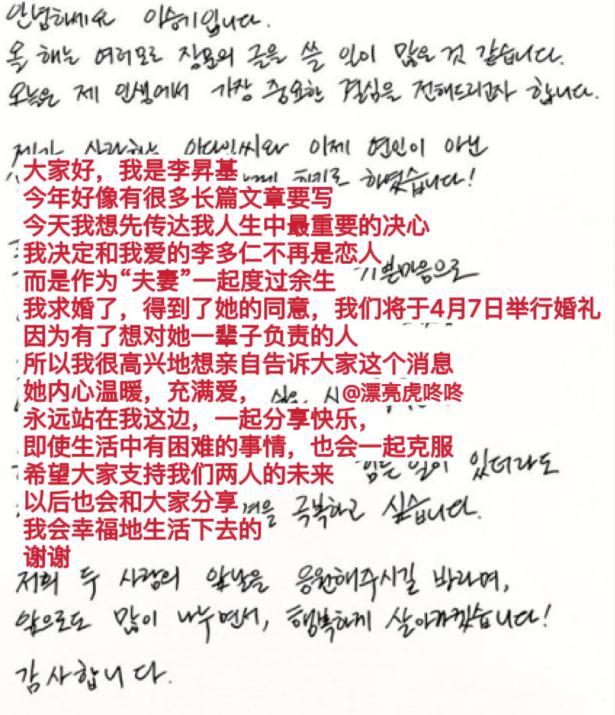 안녕하세요 이승기입니다.
올 해는 여러모로 장문의 글을 쓸 일이 많은 것 같습니다.
오늘은 제 인생에서 가장 중요한 결심을 전해드리고자 합니다.
제가 사랑하는 이다인씨와 이제 연인이 아닌
大家好，我是李昇基
하였습니다!
今年好像有很多长篇文章要写
今天我想先传达我人生中最重要的决心
我决定和我爱的李多仁不再是恋人
而是作为“夫妻”一起度过余生
기쁜마음으로
我求婚了，得到了她的同意，我们将于4月7日举行婚礼
因为有了想对她一辈子负责的人
所以我很高兴地想亲自告诉大家这个消息
她内心温暖，充满爱，
@漂亮虎咚咚
永远站在我这边，一起分享快乐，
即使生活中有困难的事情，也会一起克服
希望大家支持我们两人的未来
힘든 일이 있더라도
以后也会和大家分享
극복하고 싶습니다.
我会幸福地生活下去的
谢谢
저희 두 사람의 앞날을 응원해주시길 바라며,
앞으로도 많이 나누면서, 행복하게 살아가겠습니다!
감사합니다.